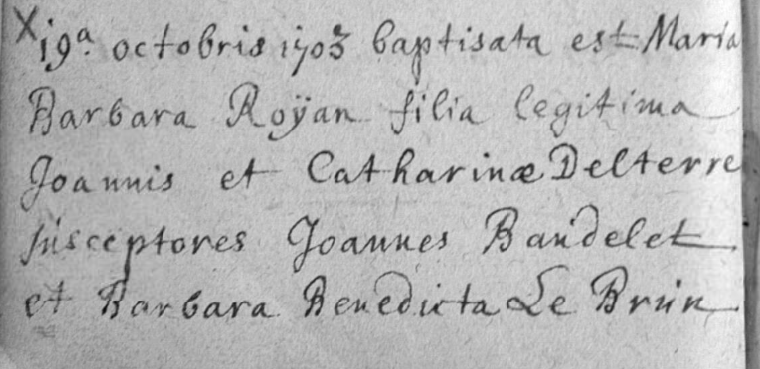 X 19ª octobris 1703 baptisata est Maria
Barbara Roÿan filia legitima
Joannis et Catharinæ Delterre
susceptores Joannes Baudelet
et Barbara Benedicta Le Brun